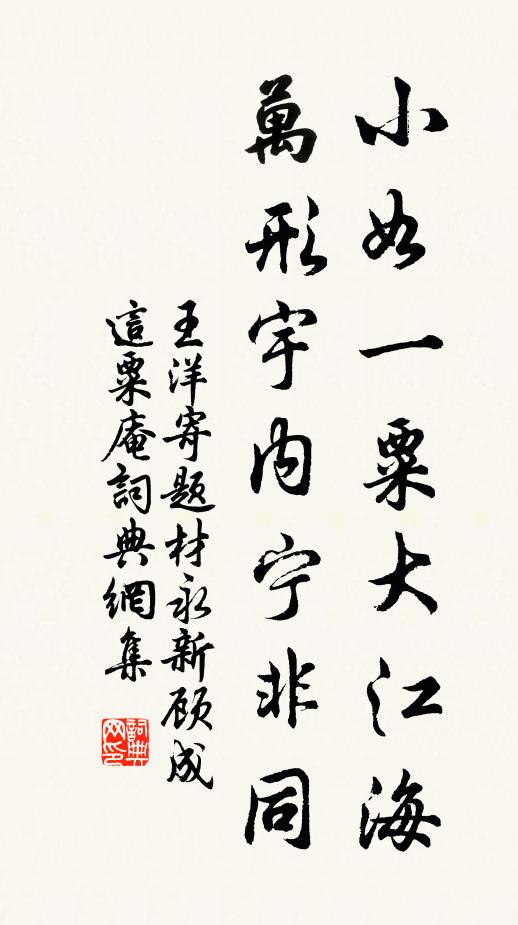 小如一粟大江海
萬形宇內宁非同
王洋寄题材永新顾成
這粟庵詞典網集
詞典网印